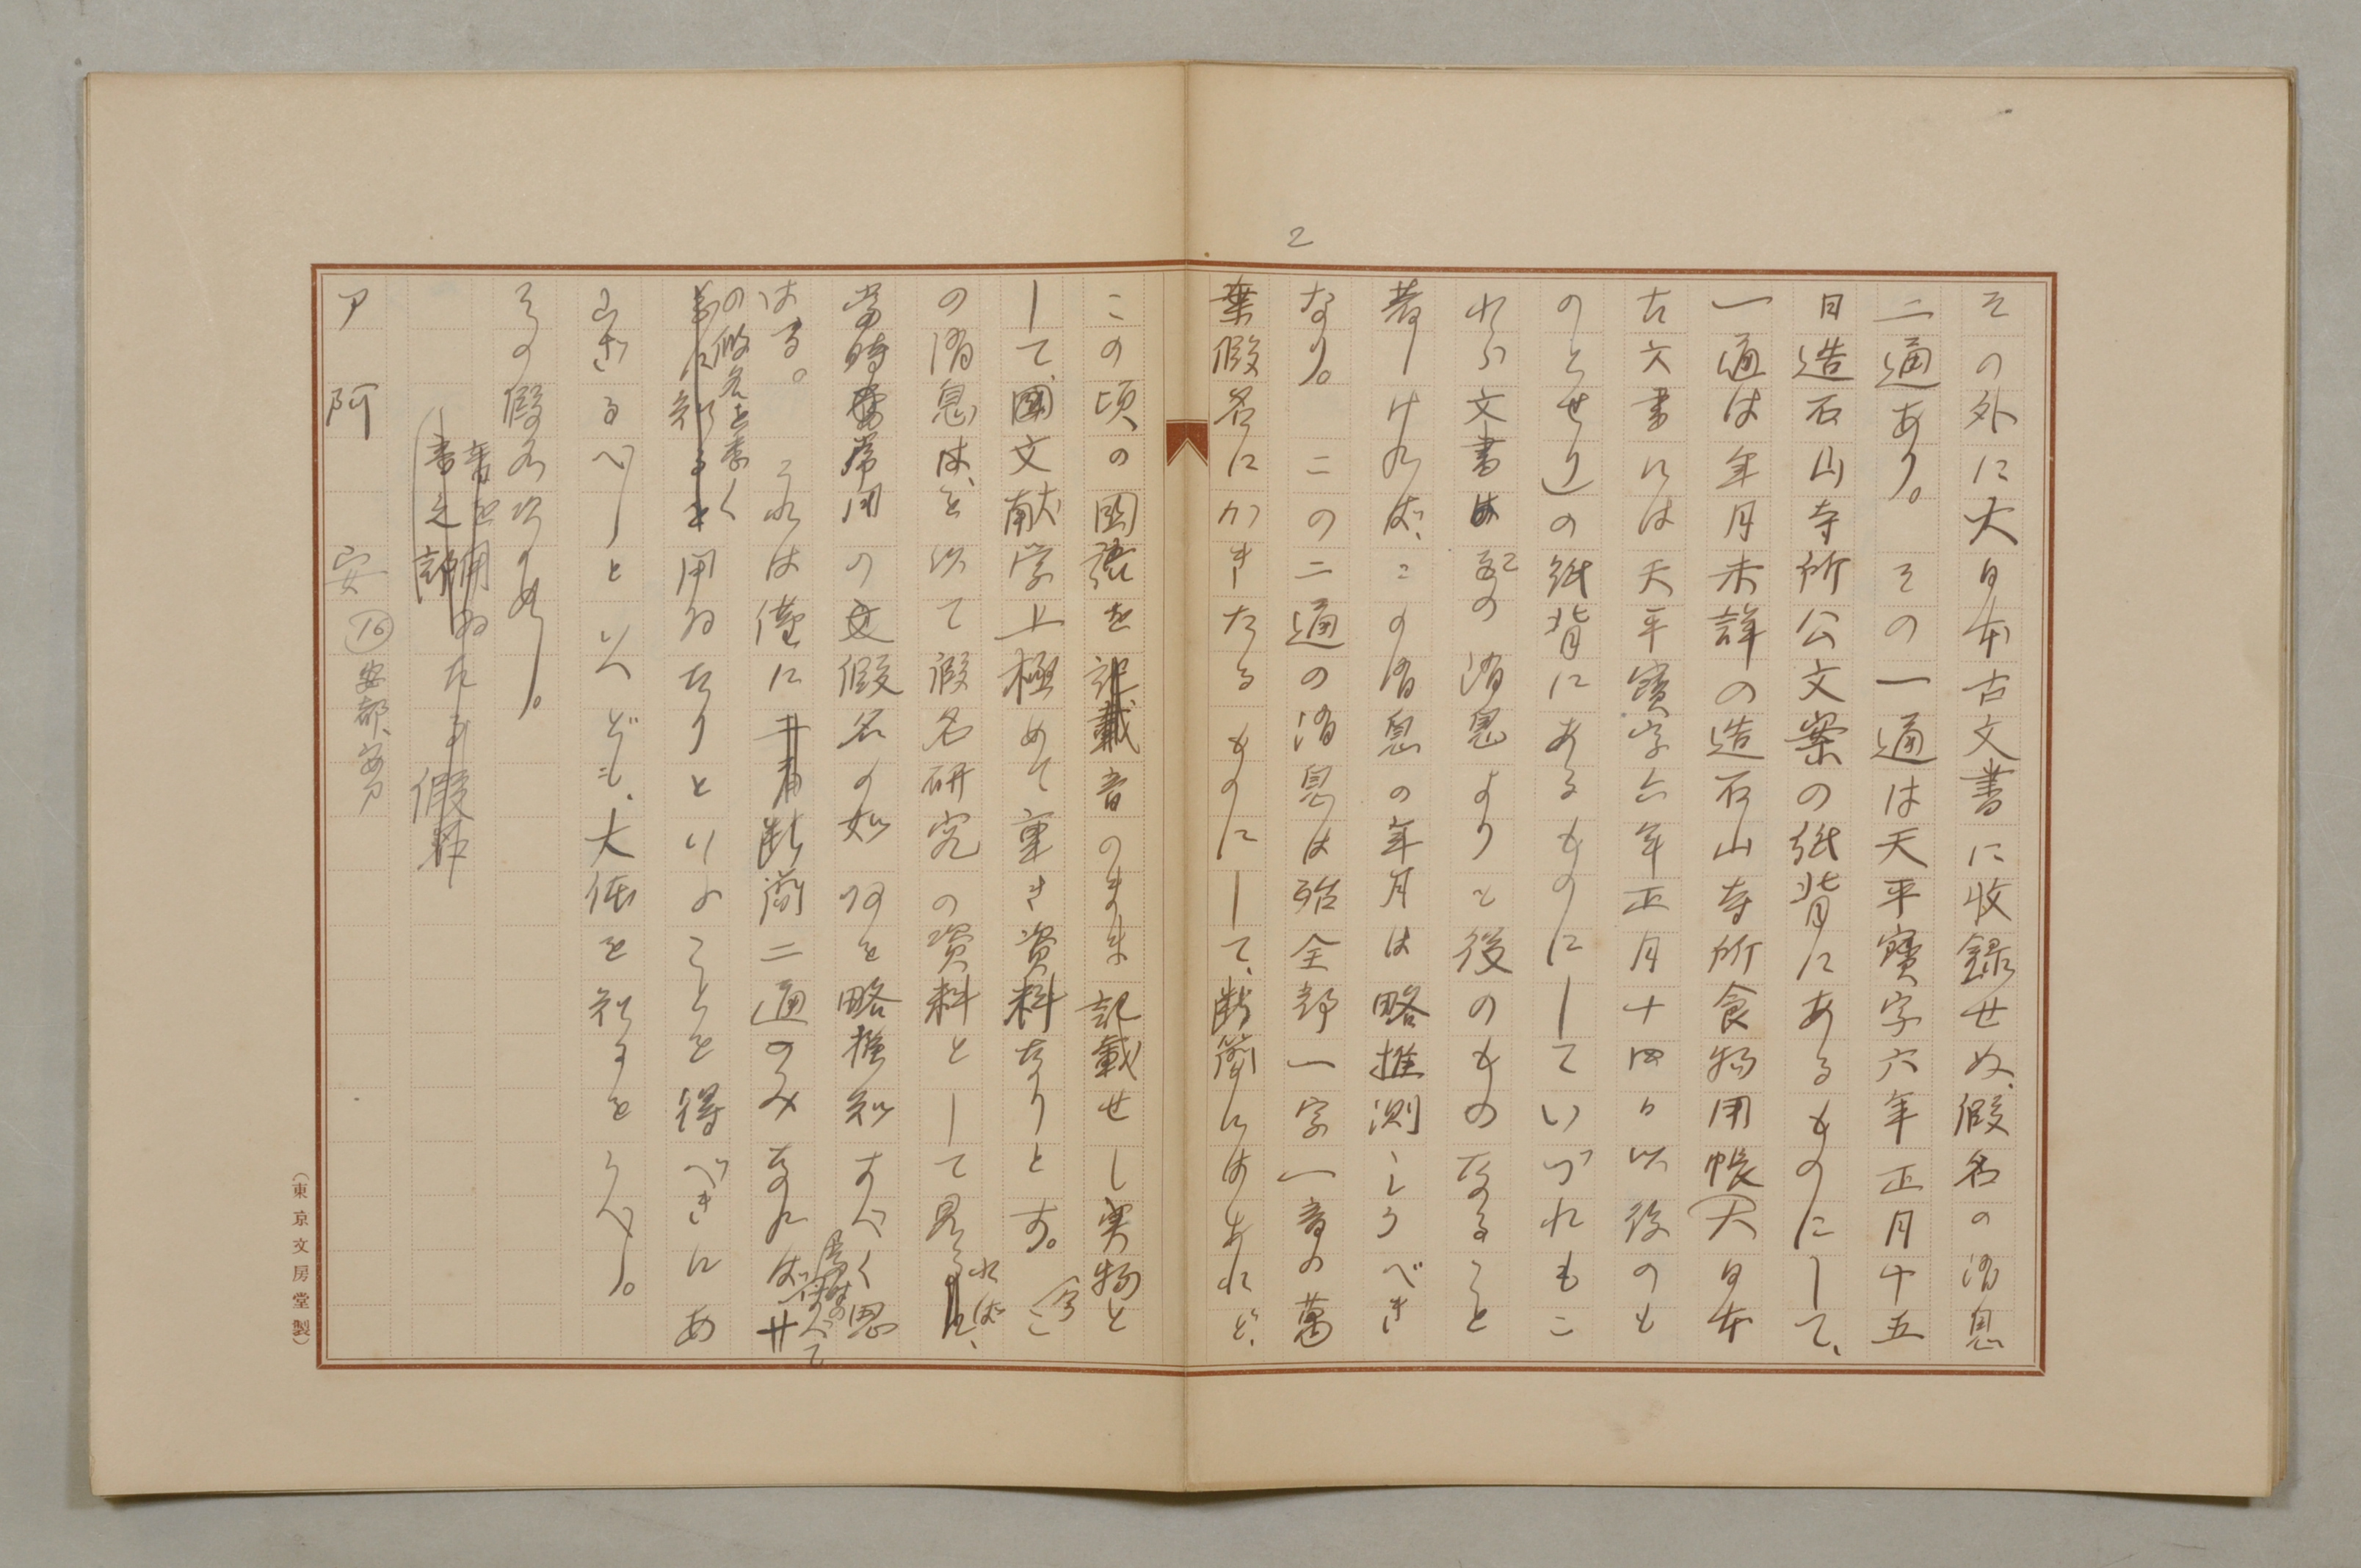 2
その外に大日本古文書に收録せぬ、假名の消息
二通あり。その一通は天平寶字六年正月廿五
日造石山寺所公文案の紙背にあるものにして、
一通は年月未詳の造石山寺所食物用帳(大日本
古文書には天平寶字六年正月十四日以後のも
のとせり)の紙背にあるものにしていづれもこ
れら文書は記の消息よりも後のものなること
著しければ、この消息の年月は略推測しうべき
なり。この二通の消息は殆全部一字一音の萬
葉假名にかきたるものにして、断簡にはあれど、
この頃の國語を音のまま記載せし実物と
して、國文献学上極めて重き資料なりとす。今こ
の消息は、を以て假名研究の資料として見るれば、
當時常用の假名の如何を略推知すべく思
はる。これは僅に断簡二通のみなれば
の假名を悉く
用ゐたりといふことを得べきにあ
らざるべしといへども、大体を知るをうべし。
その假名次の如し。
書を用ゐたる假
ア 阿 安 ⑯ 安都、安刀
(東京文房堂製)